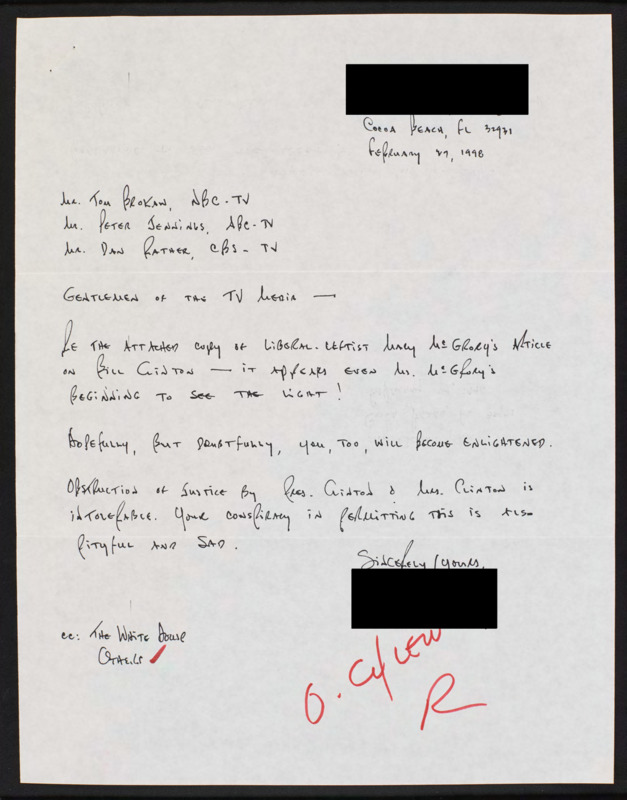 Cocoa Beach, FL 32931
February 27, 1998
Mr. Tom Brokaw, NBC-TV
Mr. Peter Jennings, ABC-TV
Mr. Dan Rather, CBS-TV
Gentlemen of the TV Media —
Re the attached copy of liberal-leftist Mary McGrory's article
on Bill Clinton — it appears even Ms. McGrory's
beginning to see the light!
Hopefully, but doubtfully, you, too, will become enlightened.
Obstruction of justice by Pres. Clinton & Mrs. Clinton is
intolerable. Your conspiracy in permitting this is also
pityful and sad.
Sincerely yours,
cc: The White House
Others ✓
R